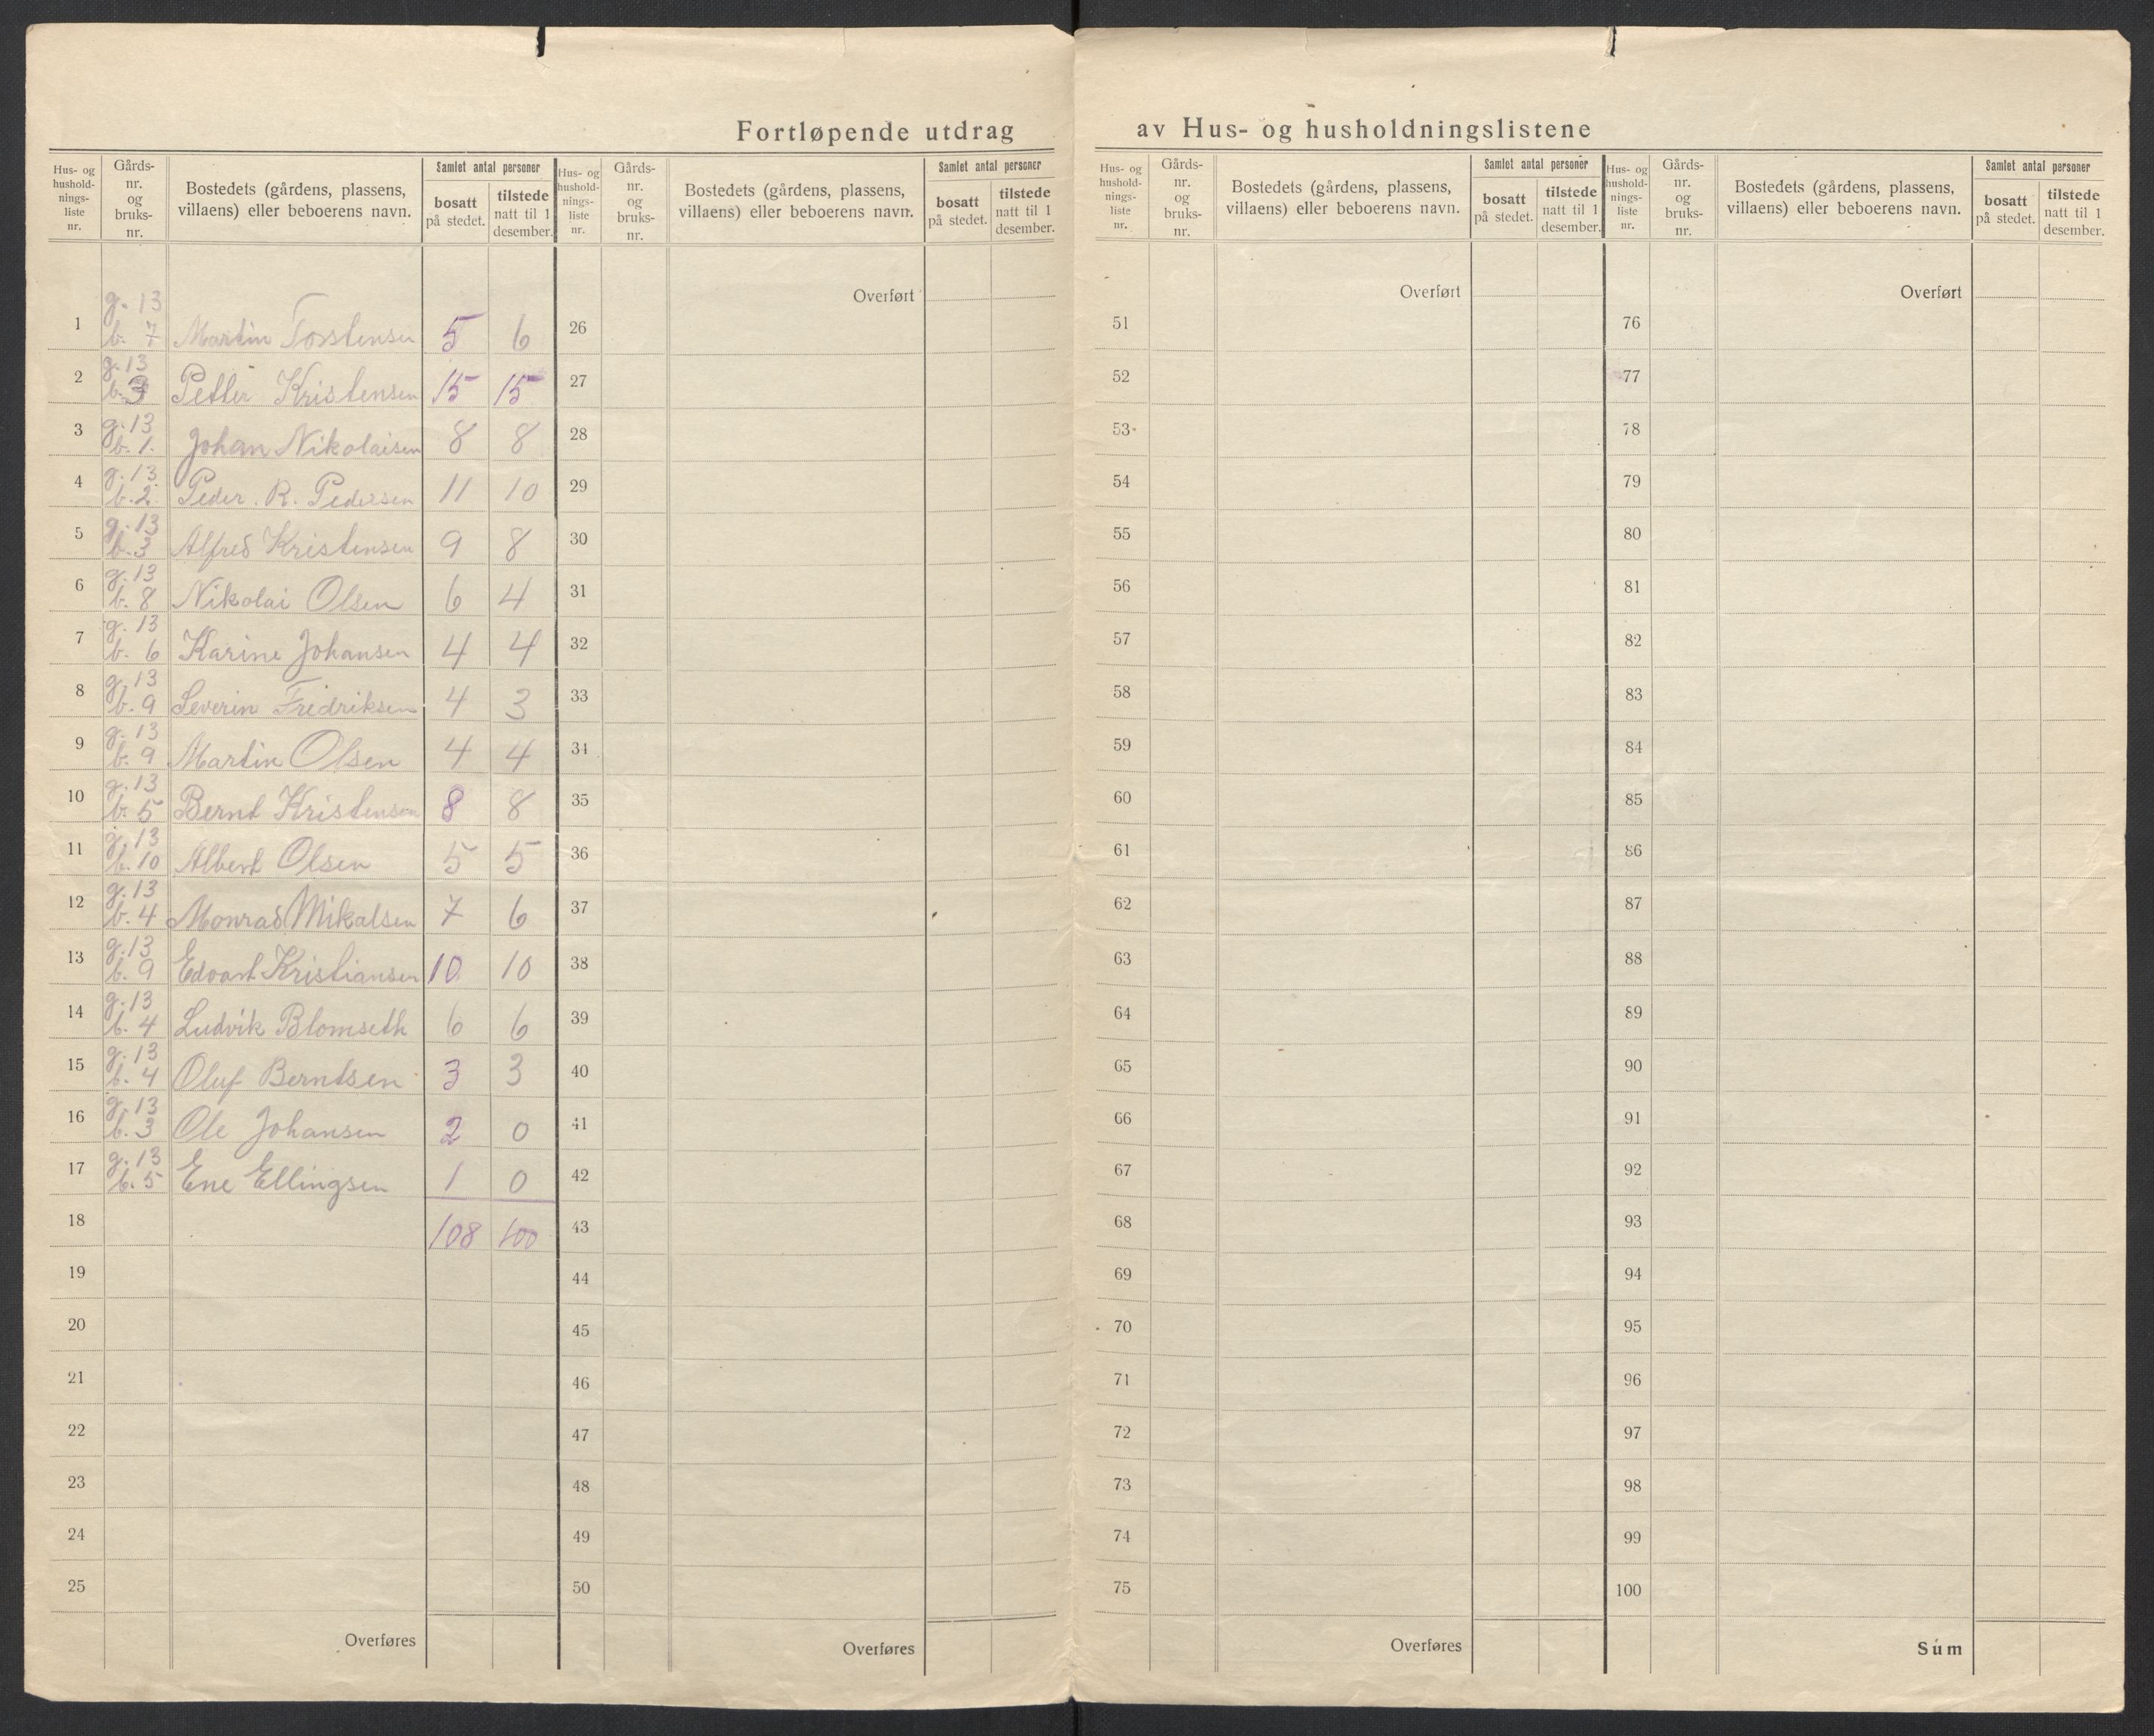 Fortløpende utdrag av Hus- og husholdningslistene
Hus- og hushold-nings-liste nr. | Gårds-nr. og bruks-nr. | Bostedets (gårdens, plassens, villaens) eller beboerens navn. | Samlet antal personer | bosatt på stedet. | tilstede natt til 1 desember.
Hus- og hushold-nings-liste nr. | Gårds-nr. og bruks-nr. | Bostedets (gårdens, plassens, villaens) eller beboerens navn. | Samlet antal personer | bosatt på stedet. | tilstede natt til 1 desember.
Hus- og hushold-nings-liste nr. | Gårds-nr. og bruks-nr. | Bostedets (gårdens, plassens, villaens) eller beboerens navn. | Samlet antal personer | bosatt på stedet. | tilstede natt til 1 desember.
Hus- og hushold-nings-liste nr. | Gårds-nr. og bruks-nr. | Bostedets (gårdens, plassens, villaens) eller beboerens navn. | Samlet antal personer | bosatt på stedet. | tilstede natt til 1 desember.
1 g. 13 b. 7 Martin Torstensen 5 6
2 g. 13 b. 3 Petter Kristensen 15 15
3 g. 13 b. 1. Johan Nikolaisen 8 8
4 g. 13. b. 2. Peder. R. Pedersen 11 10
5 g. 13 b. 3 Alfred Kristensen 9 8
6 g. 13 b. 8 Nikolai Olsen 6 4
7 g. 13 b. 6 Karine Johansen 4 4
8 g. 13 b. 9 Severin Fredriksen 4 3
9 g. 13 b. 9 Martin Olsen 4 4
10 g. 13 b. 5 Bernt Kristensen 8 8
11 g. 13 b. 10 Albert Olsen 5 5
12 g. 13 b. 4 Monrad Mikalsen 7 6
13 g. 13 b. 9 Edvart Kristiansen 10 10
14 g. 13 b. 4 Ludvik Blomseth 6 6
15 g. 13 b. 4 Oluf Berntsen 3 3
16 g. 13 b. 3 Ole Johansen 2 0
17 g. 13 b. 5 Ene Ellingsen 1 0
18 108 100
19
20
21
22
23
24
25
Overføres
Overført
26
27
28
29
30
31
32
33
34
35
36
37
38
39
40
41
42
43
44
45
46
47
48
49
50
Overføres
Overført
51
52
53
54
55
56
57
58
59
60
61
62
63
64
65
66
67
68
69
70
71
72
73
74
75
Overføres
Overført
76
77
78
79
80
81
82
83
84
85
86
87
88
89
90
91
92
93
94
95
96
97
98
99
100
Sum